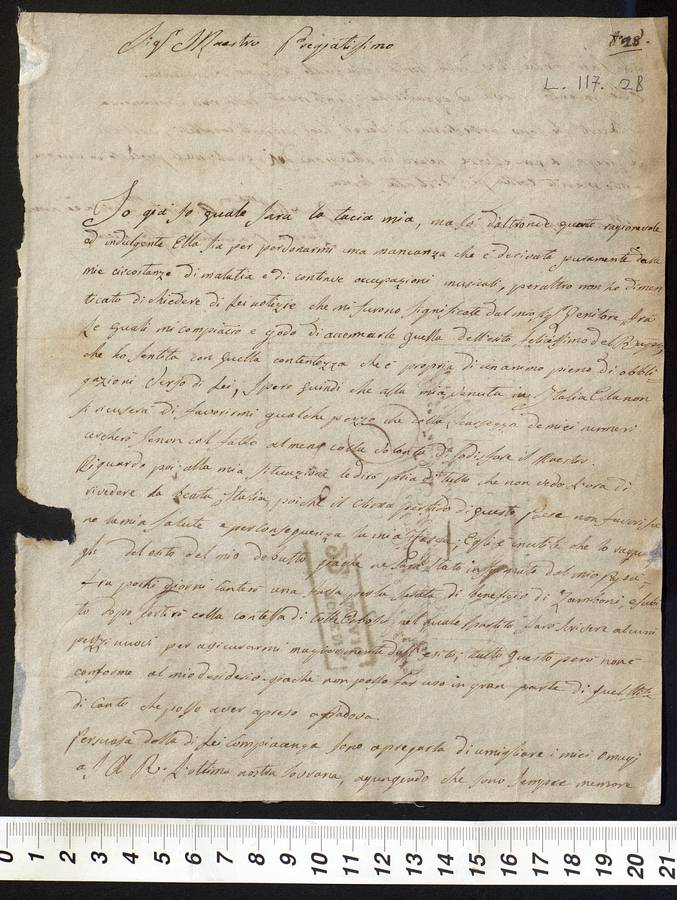 Sig.r Maestro Pregiatissimo
828.
L. 117. 28
Io già so quale sarà la tacia mia, ma so d'altronde quanto ragionevole
ed indulgente Ella sia per perdonarmi una mancanza che è derivata puramente dalle
mie circostanze di malatia e di continue occupazioni musicali, peraltro non ho dimen
ticato di chiedere di Lei notizie che mi furono significate dal mio Sig. Genitore, fra
le quali mi compiacio e godo di accennarle quella dell'esito felicissimo del
che ho sentita con quella contentezza che è propria di un animo pieno di obbli-
gazioni verso di Lei, spero quindi che alla mia venuta in Italia Ella non
si ricuserà di favorirmi qualche pezzo che colla scarsezza de miei numeri
cercherò se non col fatto almeno colla volontà di sodisfare il Maestro.
Riguardo poi alla mia situazione le dirò pria di tutto che non vedo l'ora di
rivedere la beata Italia, poiché il clima di questo Paese non favorisce
ne la mia salute e per conseguenza la mia; Egli è inutile che lo
gli del esito del mio debutto, giache ne sarà stato informato dal mio
fra pochi giorni canterò una per la serata di beneficio di Zamboni, e subi
to dopo sortirò colla contessa di Colle Erboso, nel quale spartito farò scrivere alcuni
pezzi nuovi per assicurarmi maggiormente dell'esito; tutto questo però non è
conforme al mio desiderio giache non posso far uso in gran parte di quel
di canto che posso aver apreso a Padova.
Persuasa della di Lei compiacenza sono a pregarla di umigliare i miei omagi
a S. A. R. L'ottima nostra Sovrana, agiungendo che sono sempre memore
0 1 2 3 4 5 6 7 8 9 10 11 12 13 14 15 16 17 18 19 20 21